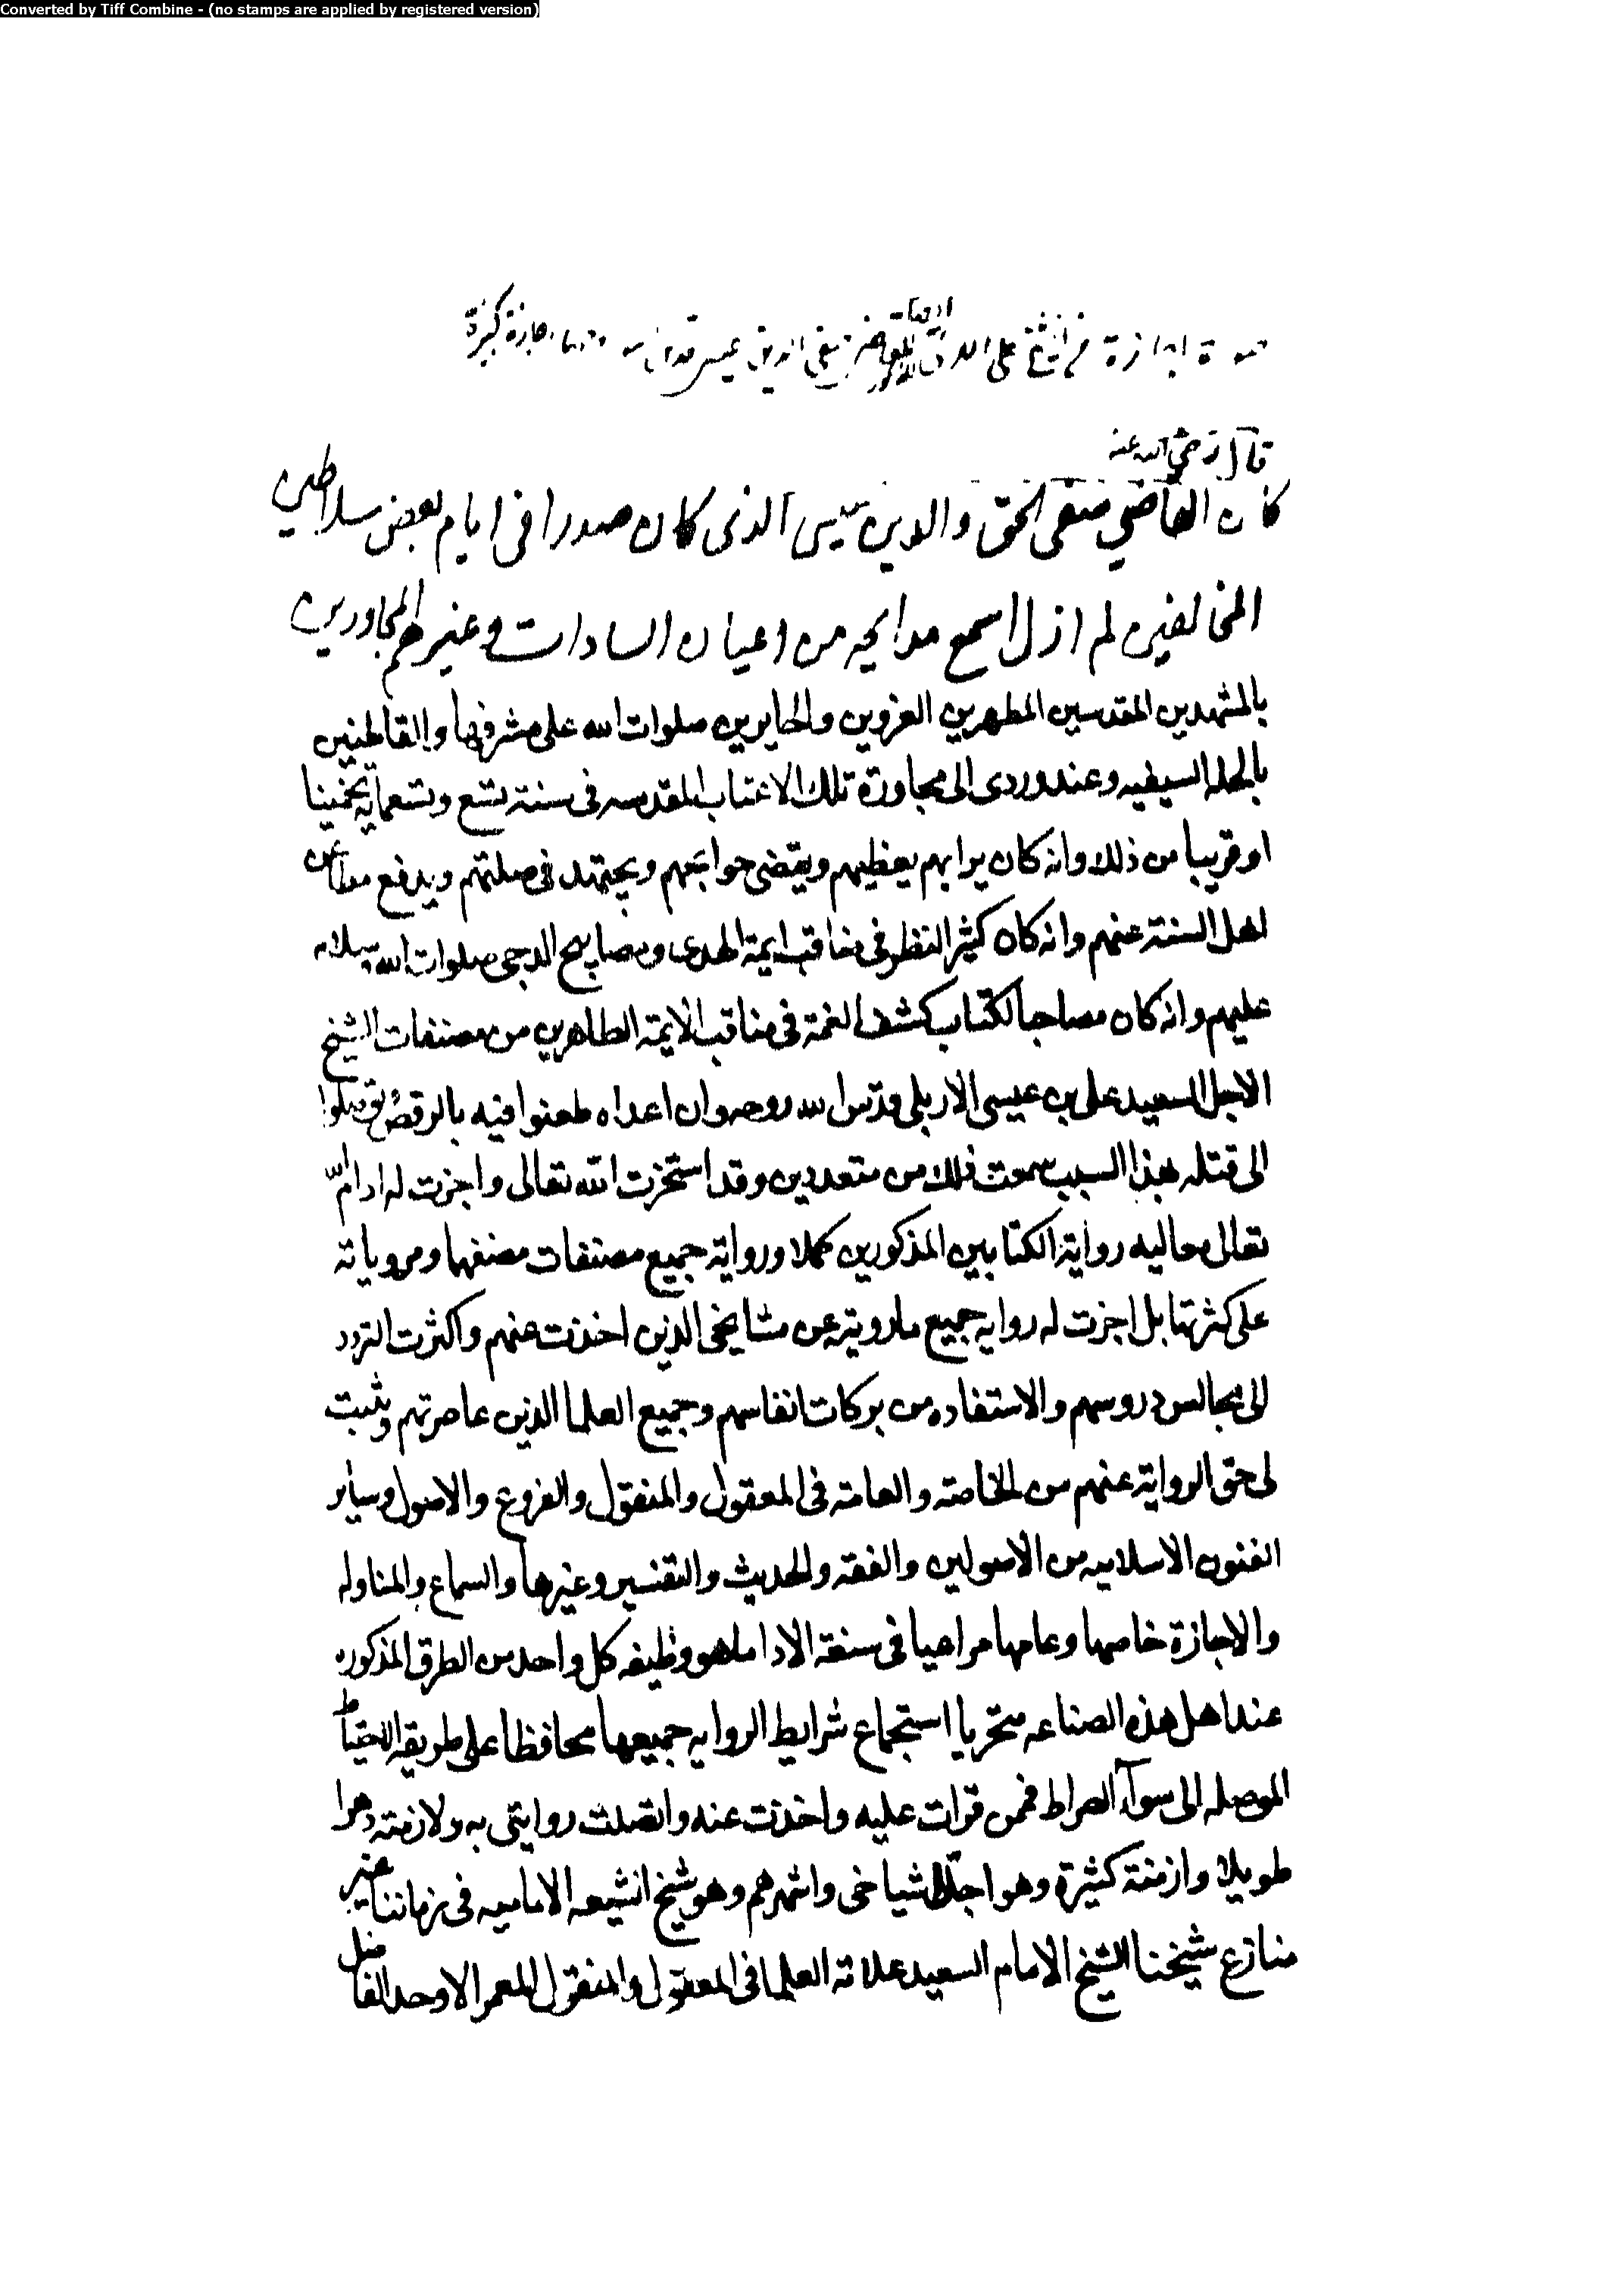 Converted by Tiff Combine - (no stamps are applied by registered version)
من الشيخ على
قال رضي الله عنه
كان القاضي صفى الحق والدين عيسى الذى كان صدرا فى ايام بعض سلاطين
المخالفين لم ازل اسمع مدايحه من اعيان السادات وغيرهم المجاورين
بالمشهدين المقدسين المطهرين الغرويين والحايريين صلوات الله على مشرفيها والقاطنين
بالحله السيفيه وعند وردى الى مجاورة تلك الاعتاب المقدسه فى سنة تسع وتسعمايه تخمينا
او قريبا من ذلك وانه كان يعظمهم ويقضى حوايجهم ويجتهد فى صلتهم ويدفع
اهل السنة عنهم وانه كان كثير النظر فى مناقب ايمة الهدى ومصابيح الدجى صلوات الله وسلامه
عليهم وانه كان مصاحبا لكتاب كشف الغمة فى مناقب الايمة الطاهرين من مصنفات الشيخ
الاجل السعيد على بن عيسى الاربلى قدس الله روحه وان اعداه طعنوا فيه بالرفض وتوصلوا
الى قتله بهذا السبب سمعت ذلك من متعددين وقد استخرت الله تعالى واجزت له ادام الله
تعالى معاليه رواية الكتابين المذكورين كملا ورواية جميع مصنفات مصنفها ومروياته
على كثرتها بل اجزت له روايه جميع مارويته عن مشايخى الذين اخذت عنهم واكثرت التردد
الى مجالس دروسهم والاستفاده من بركات انفاسهم وجميع العلما الذين عاصرتهم وثبت
لى حق الرواية عنهم من الخاصة والعامة فى المعقول والمنقول والفروع والاصول وساير
الفنون الاسلاميه من الاصولين والفقه والحديث والتفسير وغيرها والسماع والمناوله
والاجازة خاصها وعامها مراعيا فى سنة الادا ماهو وظيفه كل واحد من الطرق المذكوره
عند اهل هذه الصناعه متحريا استجماع شرايط الروايه جميعها محافظا على طريقه الاحتياط
الموصله الى سوآء الصراط فممن قرات عليه واخذت عنه واتصلت روايتى به ولازمته دهرا
طويلا وازمنة كثيرة وهو اجل اشياخى واشهرهم وهو شيخ الشيعه الاماميه فى زماننا غير
منازع شيخنا الشيخ الامام السعيد علامة العلما فى المعقول والمنقول المعمر الاوحد الفاضل